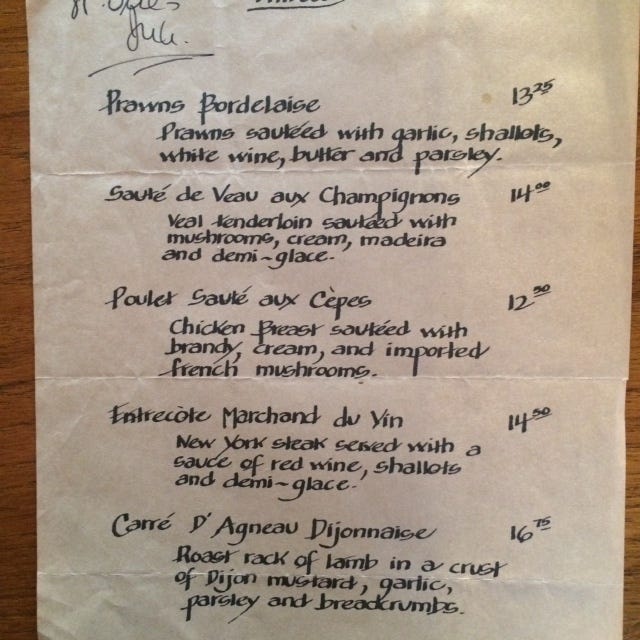 Prawns Bordelaise 13 25
Prawns sautéed with garlic, shallots,
white wine, butter and parsley.
Sauté de Veau aux Champignons 14 00
Veal tenderloin sautéed with
mushrooms, cream, madeira
and demi-glace.
Poulet Sauté aux Cèpes 12 50
Chicken Breast sautéed with
brandy, cream, and imported
french mushrooms.
Entrecôte Marchand du Vin 14 50
New York steak served with a
sauce of red wine, shallots
and demi-glace.
Carré D'Agneau Dijonnaise 16 75
Roast rack of lamb in a crust
of Dijon mustard, garlic,
parsley and breadcrumbs.